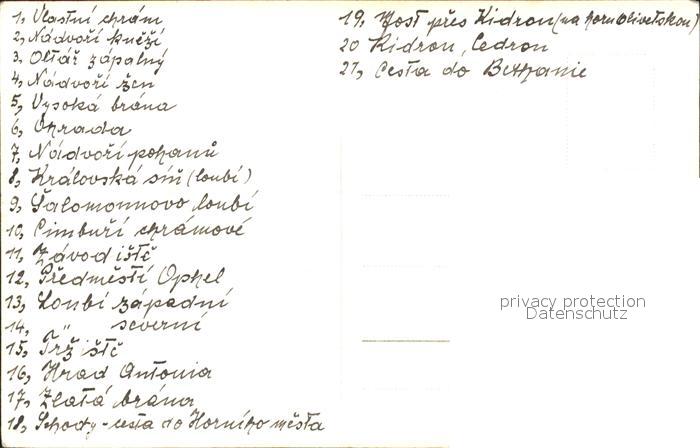 1, Vlastní chrám
2, Nádvoří kněží
3, Oltář zápalný
4, Nádvoří žen
5, Vysoká brána
6, Ohrada
7, Nádvoří pohanů
8, Královská síň (loubí)
9, Šalomounovo loubí
10, Cimbuří chrámové
11, Závodiště
12, Předměstí Ophel
13, Loubí západní
14, „ " severní
15, Tržiště
16, Hrad Antonia
17, Zlatá brána
18, Schody - cesta do Horního města
19, Most přes Kidron (na horu Olivetskou)
20 Kidron, Cedron
21, Cesta do Bethanie
privacy protection
Datenschutz